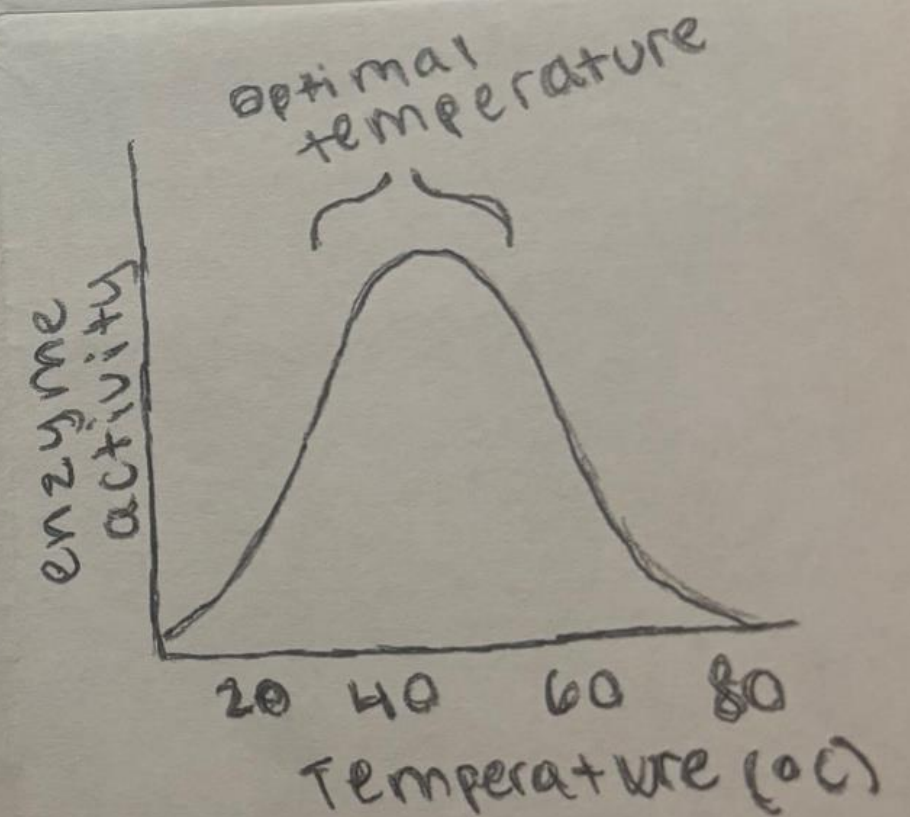 optimal
temperature
enzyme
activity
20 40 60 80
Temperature (°C)